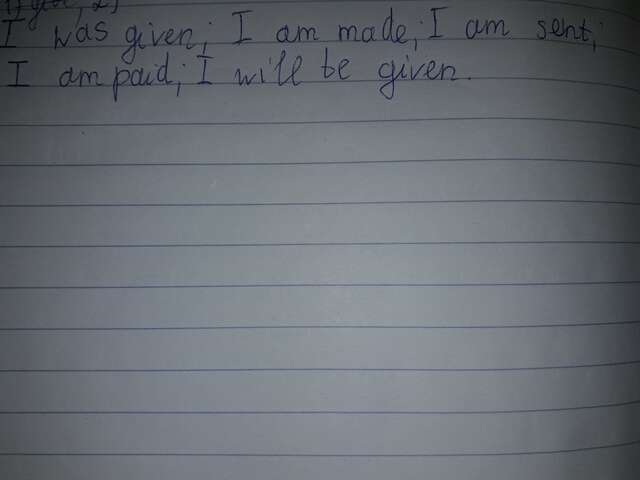 I was given; I am made; I am sent;
I am paid; I will be given.